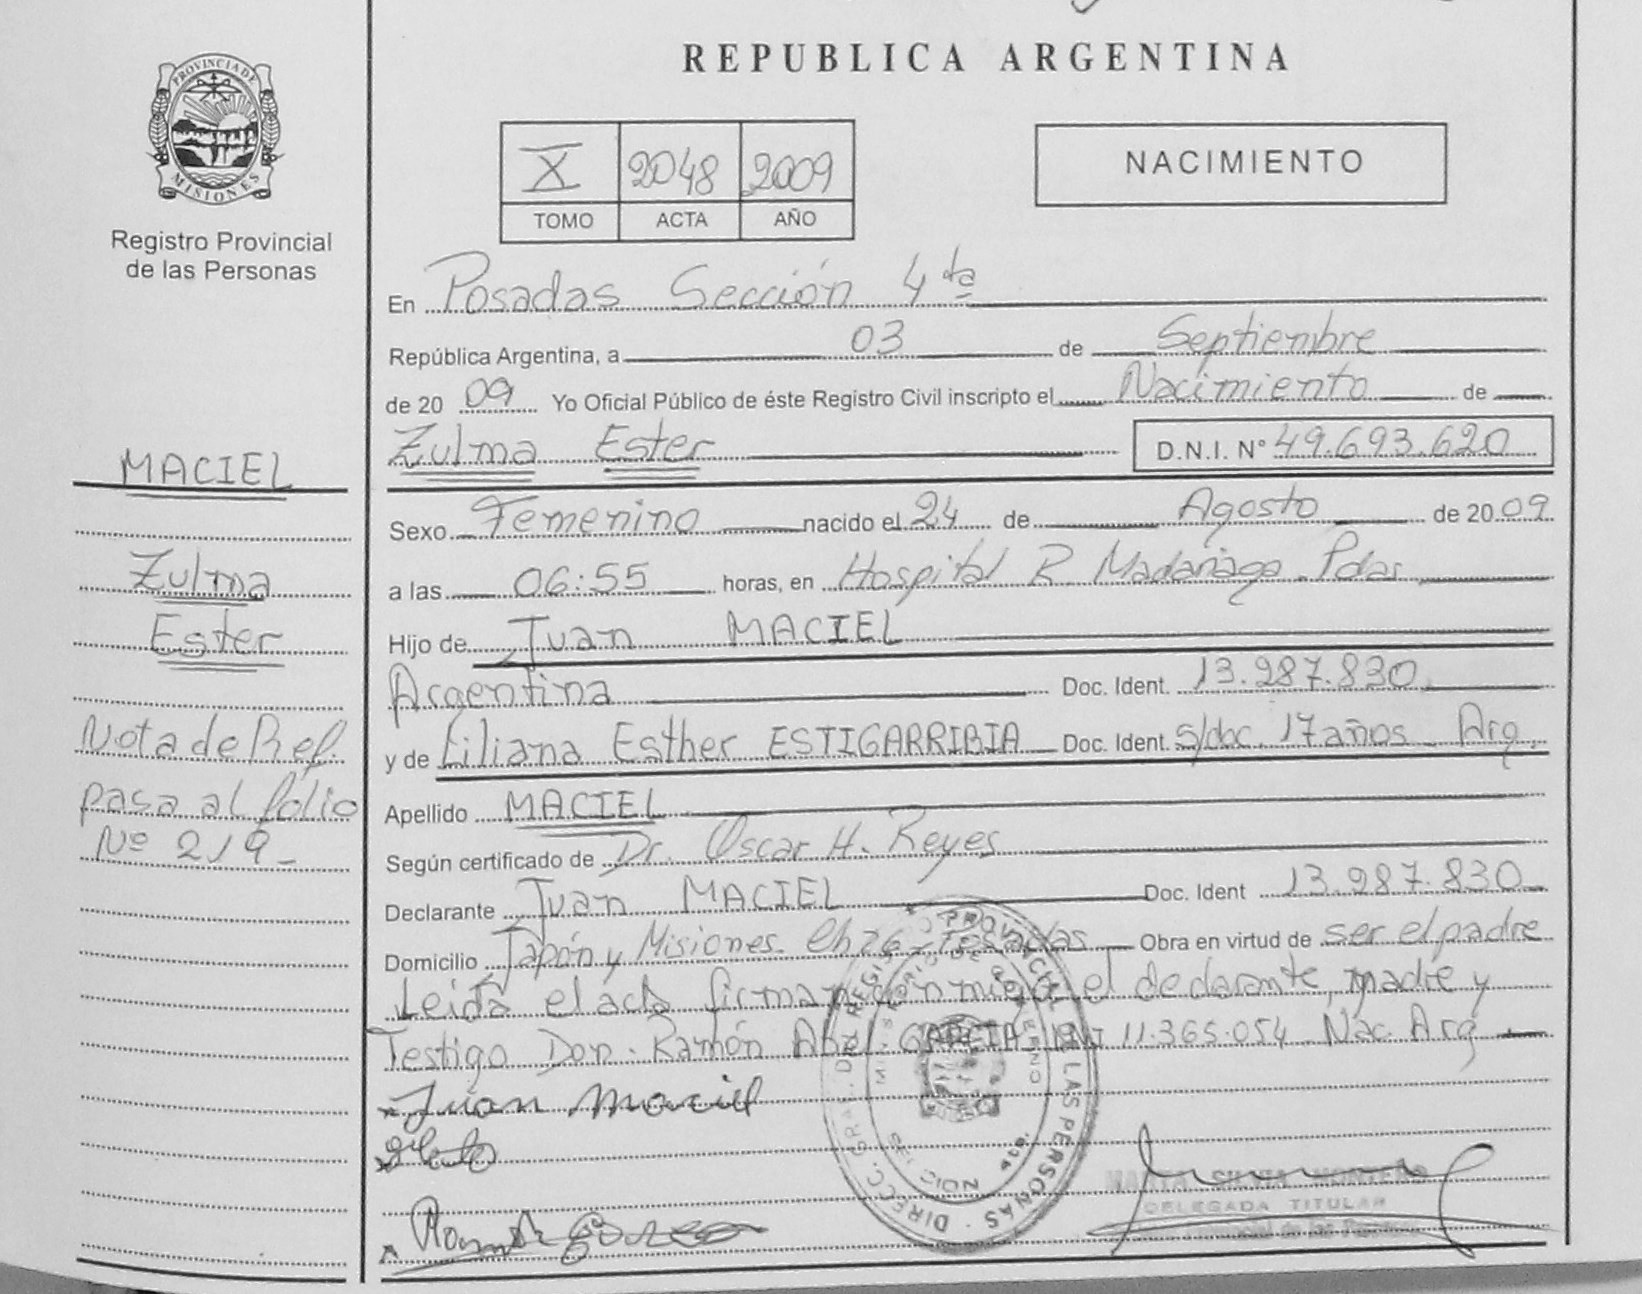 REPUBLICA ARGENTINA
PROVINCIA DE
MISIONES
Registro Provincial
de las Personas
X 2048 2009
TOMO ACTA AÑO
NACIMIENTO
En Posadas Sección 4ta
República Argentina, a 03 de Septiembre
de 20 09 Yo Oficial Público de éste Registro Civil inscripto el Nacimiento de
Zulma Ester D.N.I. N° 49.693.620
Sexo Femenino nacido el 24 de Agosto de 20 09
a las 06:55 horas, en Hospital R. Madariaga. Pdas
Hijo de Juan MACIEL
Argentina Doc. Ident. 13.987.830
y de Liliana Esther ESTIGARRIBIA Doc. Ident. s/doc. 17 años - Arg.
Apellido MACIEL
Según certificado de Dr. Oscar H. Reyes
Declarante Juan MACIEL Doc. Ident 13.987.830
Domicilio Japón y Misiones. Posadas Obra en virtud de ser el padre
Leida el acta firman el declarante, madre y
Testigo Don. Ramón Abel GARCIA DNI 11.365.054 Nac. Arg
Juan Maciel
MACIEL
Zulma
Ester
Nota de Ref.
pasa al folio
Nº 219-
MARTA SILVIA MONTERO
DELEGADA TITULAR